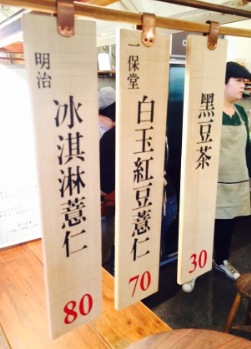 明治
冰淇淋薏仁
80
一保堂
白玉紅豆薏仁
70
黑豆茶
30